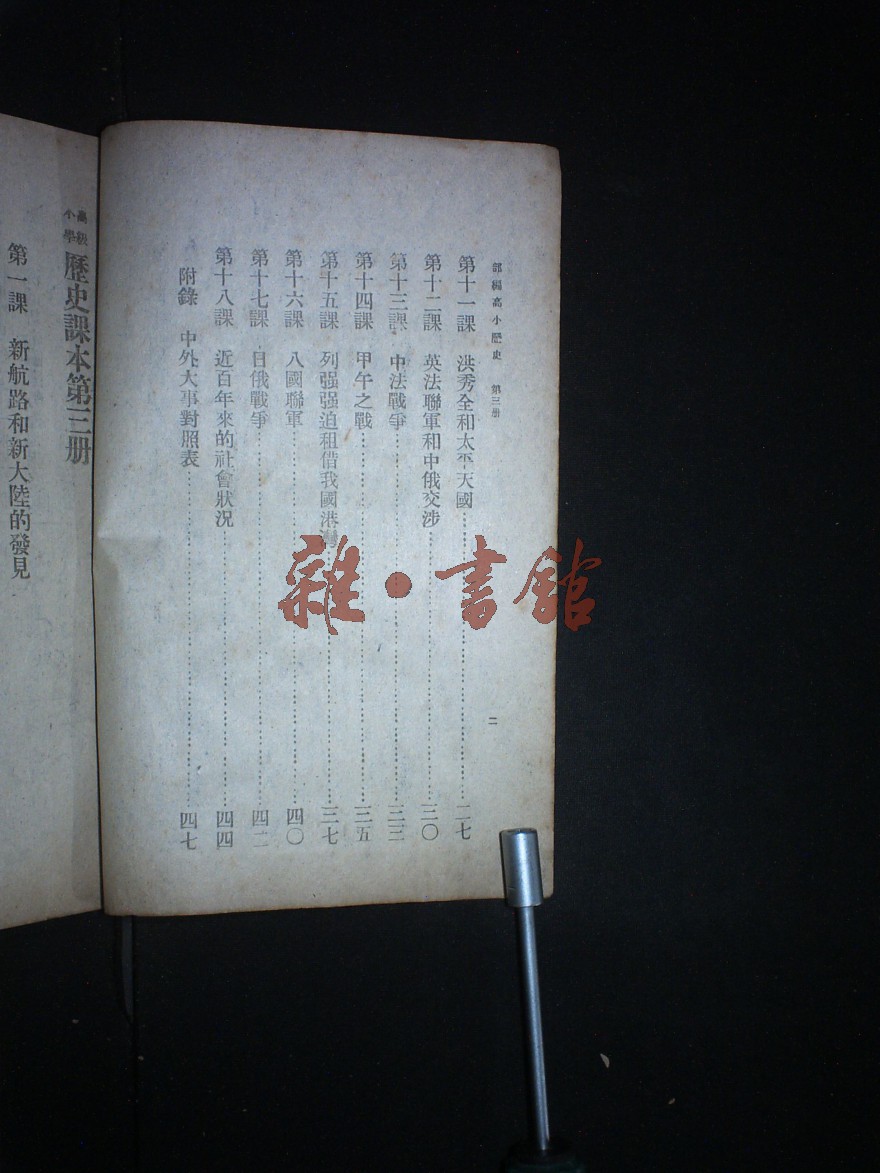 部編高小歷史　第三册
二
第十一課　洪秀全和太平天國……二七
第十二課　英法聯軍和中俄交涉……三〇
第十三課　中法戰爭……三三
第十四課　甲午之戰……三五
第十五課　列强强迫租借我國港灣……三七
第十六課　八國聯軍……四〇
第十七課　日俄戰爭……四二
第十八課　近百年來的社會狀況……四四
附錄　中外大事對照表……四七
高級小學　歷史課本第三册
第一課　新航路和新大陸的發見
雜·書館